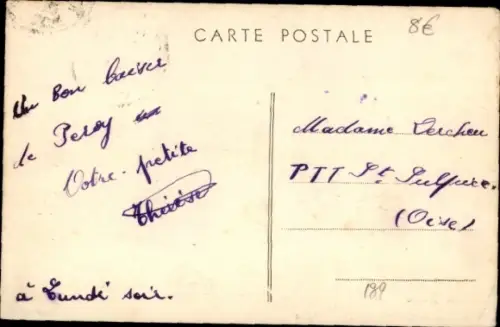 CARTE POSTALE
8€
Un Bon baiser
de Peroy
Votre petite
Thérèse
à Lundi soir.
Madame
PTT St Sulpice.
(Oise)
189